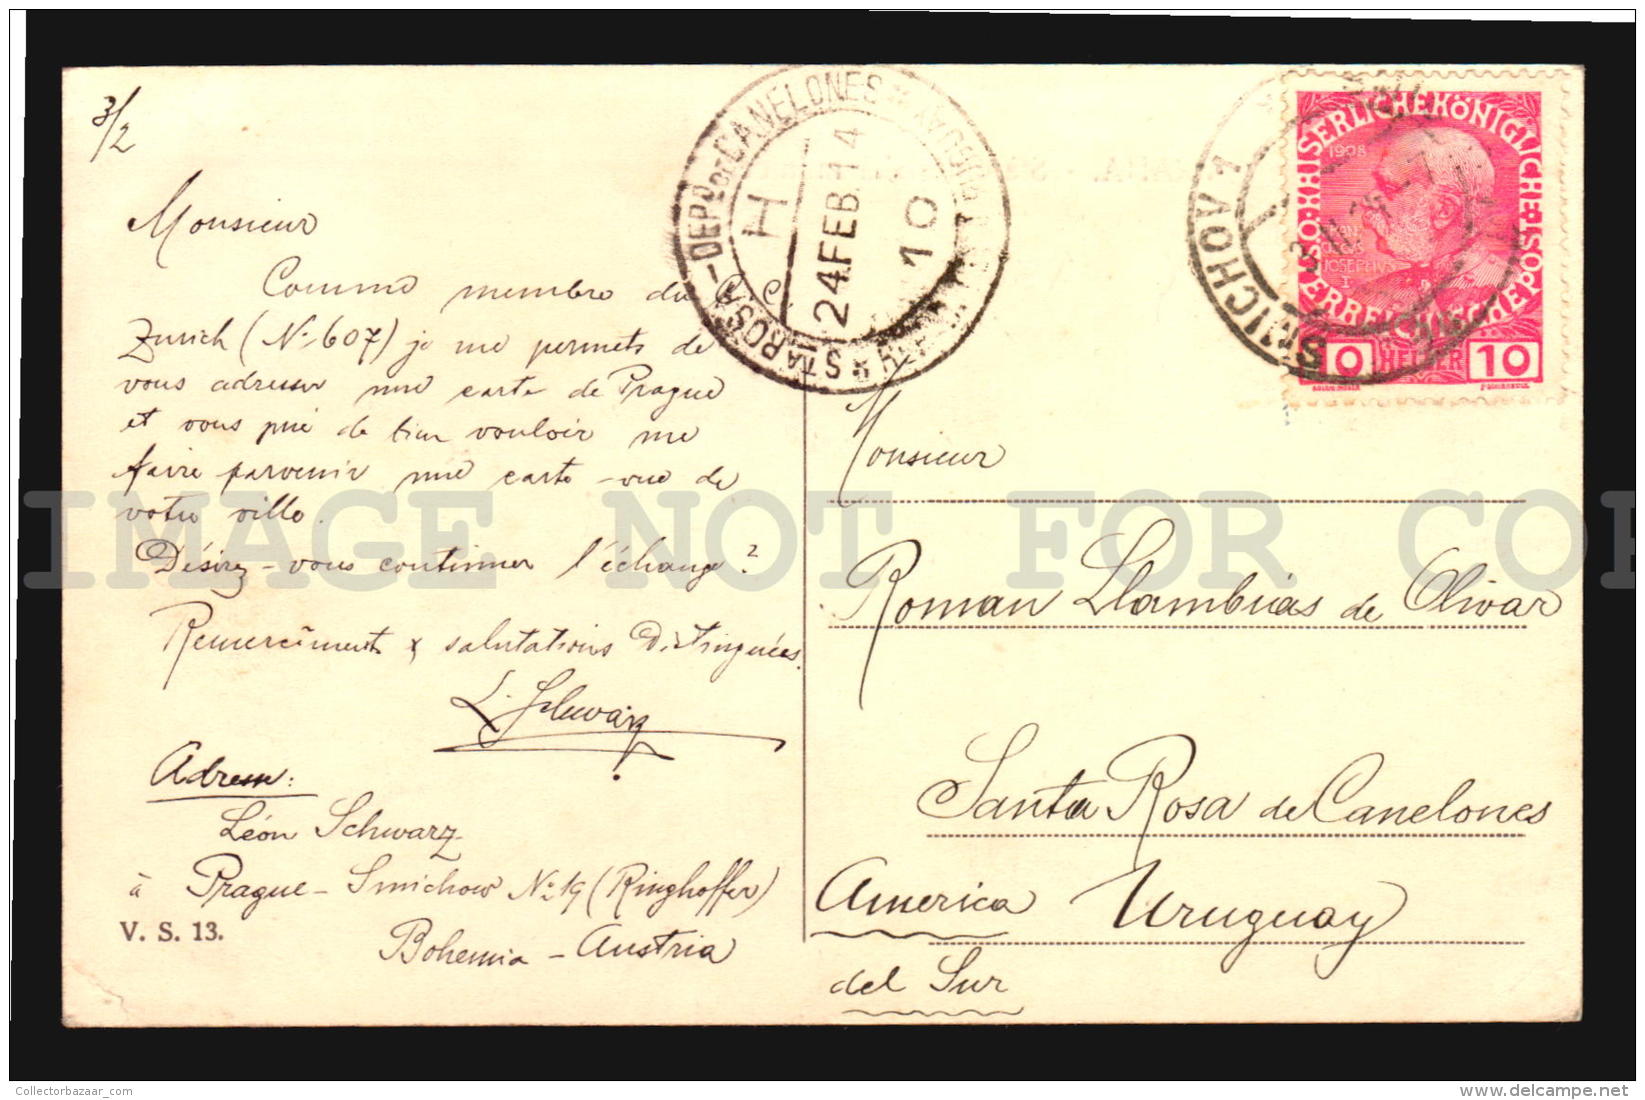 3/2
Monsieur
Comme membre du C. C.
Zurich (No 607) je me permets de
vous adresser une carte de Prague
et vous prie de bien vouloir me
faire parvenir une carte-vue de
votre ville.
Désirez-vous continuer l'échange?
Remerciments & salutations Distinguées.
L. Schwarz
Adresse:
Léon Schwarz
à Prague - Smichow No 19 (Ringhoffer)
Bohemia - Austria
V. S. 13.
STA ROSA - DEPTO DE CANELONES
H
24 FEB. 14
10
SMICHOV 1
KAISERLICHE KÖNIGLICHE
ÖSTERREICHISCHE POST
1908
10 HELLER 10
Monsieur
Roman Llambias de Olivar
Santa Rosa de Canelones
America Uruguay
del Sur
IMAGE NOT FOR COP
Collectorbazaar.com
delcampe.net